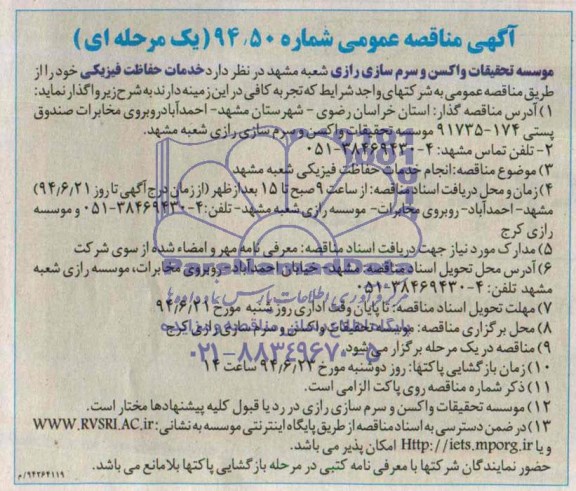 آگهی مناقصه عمومی شماره ۹۴.۵۰ (یک مرحله ای)
موسسه تحقیقات واکسن و سرم سازی رازی شعبه مشهد در نظر دارد خدمات حفاظت فیزیکی خود را از
طریق مناقصه عمومی به شرکتهای واجد شرایط که تجربه کافی در این زمینه دارند به شرح زیر واگذار نماید:
۱) آدرس مناقصه گذار: استان خراسان رضوی - شهرستان مشهد- احمدآباد روبروی مخابرات صندوق
پستی ۱۷۴-۹۱۷۳۵ موسسه تحقیقات واکسن و سرم سازی رازی شعبه مشهد.
۲- تلفن تماس مشهد: ۴-۳۸۴۶۹۴۳۰-۰۵۱
۳) موضوع مناقصه: انجام خدمات حفاظت فیزیکی شعبه مشهد
۴) زمان و محل دریافت اسناد مناقصه: از ساعت ۹ صبح تا ۱۵ بعد از ظهر (از زمان درج آگهی تا روز ۹۴/۶/۲۱)
مشهد- احمدآباد- روبروی مخابرات- موسسه رازی شعبه مشهد- تلفن: ۴-۳۸۴۶۹۴۳۰-۰۵۱ و موسسه
رازی کرج
۵) مدارک مورد نیاز جهت دریافت اسناد مناقصه: معرفی نامه مهر و امضاء شده از سوی شرکت
۶) آدرس محل تحویل اسناد مناقصه: مشهد- خیابان احمدآباد- روبروی مخابرات، موسسه رازی شعبه
مشهد تلفن: ۴-۳۸۴۶۹۴۳۰-۰۵۱
۷) مهلت تحویل اسناد مناقصه: تا پایان وقت اداری روز شنبه مورخ ۹۴/۶/۲۱
۸) محل برگزاری مناقصه: موسسه تحقیقات واکسن و سرم سازی رازی کرج
۹) مناقصه در یک مرحله برگزار می شود.
۱۰) زمان بازگشایی پاکتها: روز دوشنبه مورخ ۹۴/۶/۲۳ ساعت ۱۴
۱۱) ذکر شماره مناقصه روی پاکت الزامی است.
۱۲) موسسه تحقیقات واکسن و سرم سازی رازی در رد یا قبول کلیه پیشنهادها مختار است.
۱۳) در ضمن دسترسی به اسناد مناقصه از طریق پایگاه اینترنتی موسسه به نشانی: WWW.RVSRI.AC.ir
و یا Http://iets.mporg.ir امکان پذیر می باشد.
حضور نمایندگان شرکتها با معرفی نامه کتبی در مرحله بازگشایی پاکتها بلامانع می باشد.
۹۴۲۶۴۱۱۹/م
ParsNamadData
مرکز فرآوری اطلاعات پارس نماد داده ها
۰۲۱-۸۸۳۴۹۶۷۰-۵